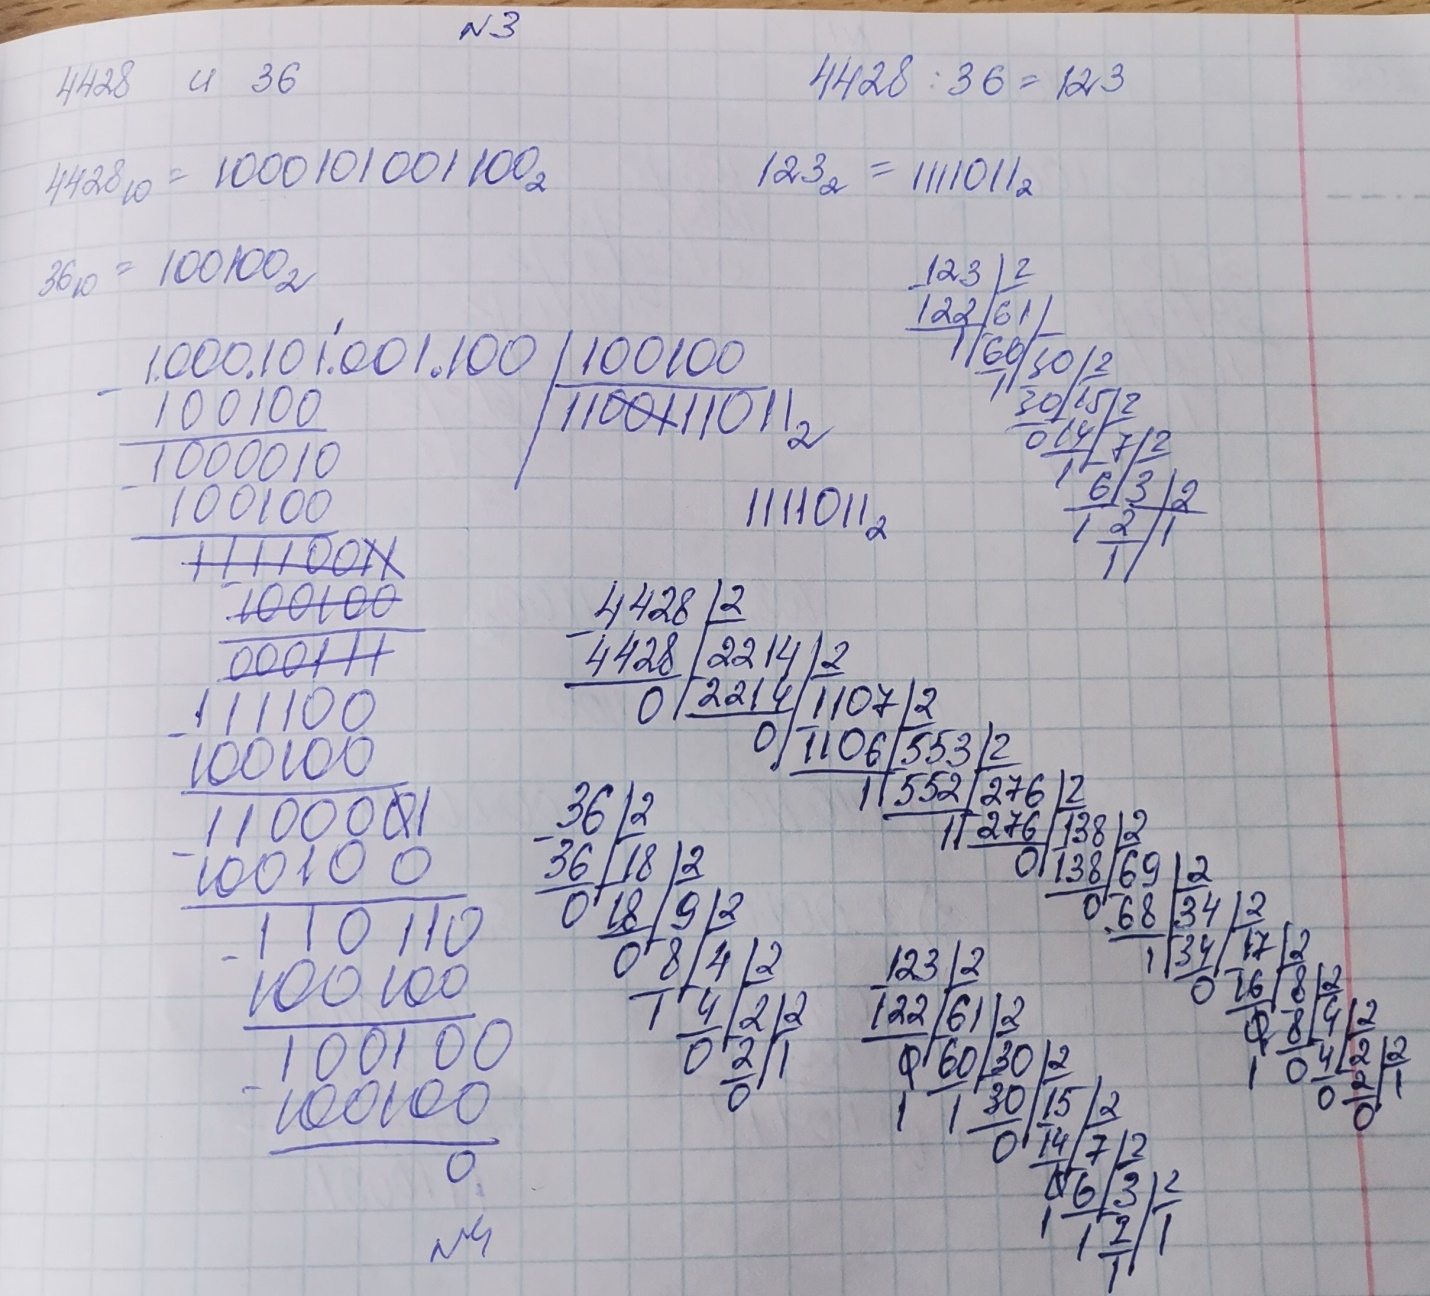 N3
4428 и 36
4428 : 36 = 123
4428₁₀ = 1000101001100₂
123₂ = 1111011₂
36₁₀ = 100100₂
1.000.101.001.100 | 100100
- 100100 | 110011011₂
1000010
- 100100
111100
- 100100
110001
- 100100
110110
- 100100
100100
- 100100
0
1111011₂
123 | 2
122 | 61
1 | 60 | 30 | 2
1 | 30 | 15 | 2
0 | 14 | 7 | 2
1 | 6 | 3 | 2
1 | 2 | 1
1
- 4428 | 2
4428 | 2214 | 2
0 | 2214 | 1107 | 2
0 | 1106 | 553 | 2
1 | 552 | 276 | 2
1 | 276 | 138 | 2
0 | 138 | 69 | 2
0 | 68 | 34 | 2
1 | 34 | 17 | 2
0 | 16 | 8 | 2
1 | 8 | 4 | 2
0 | 4 | 2 | 2
0 | 2 | 1
0
- 36 | 2
36 | 18 | 2
0 | 18 | 9 | 2
0 | 8 | 4 | 2
1 | 4 | 2 | 2
0 | 2 | 1
0
- 123 | 2
122 | 61 | 2
1 | 60 | 30 | 2
1 | 30 | 15 | 2
0 | 14 | 7 | 2
1 | 6 | 3 | 2
1 | 2 | 1
1
N4